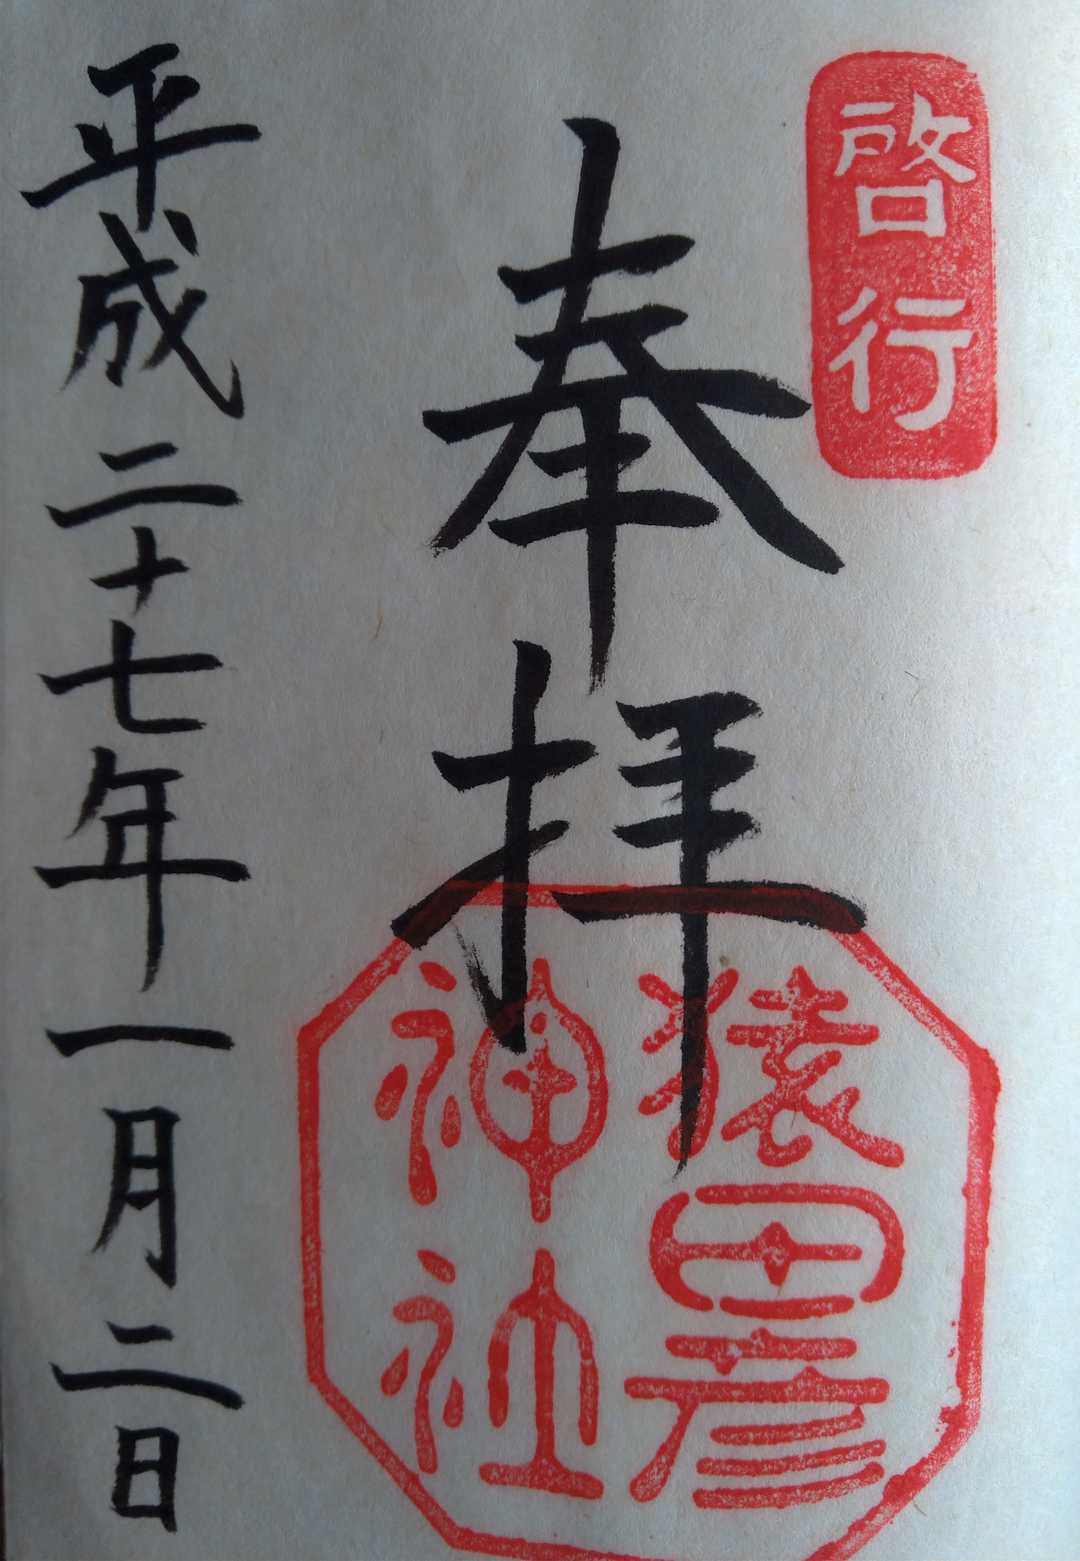 啓行
奉拝
猿田彦
神社
平成二十七年一月二日